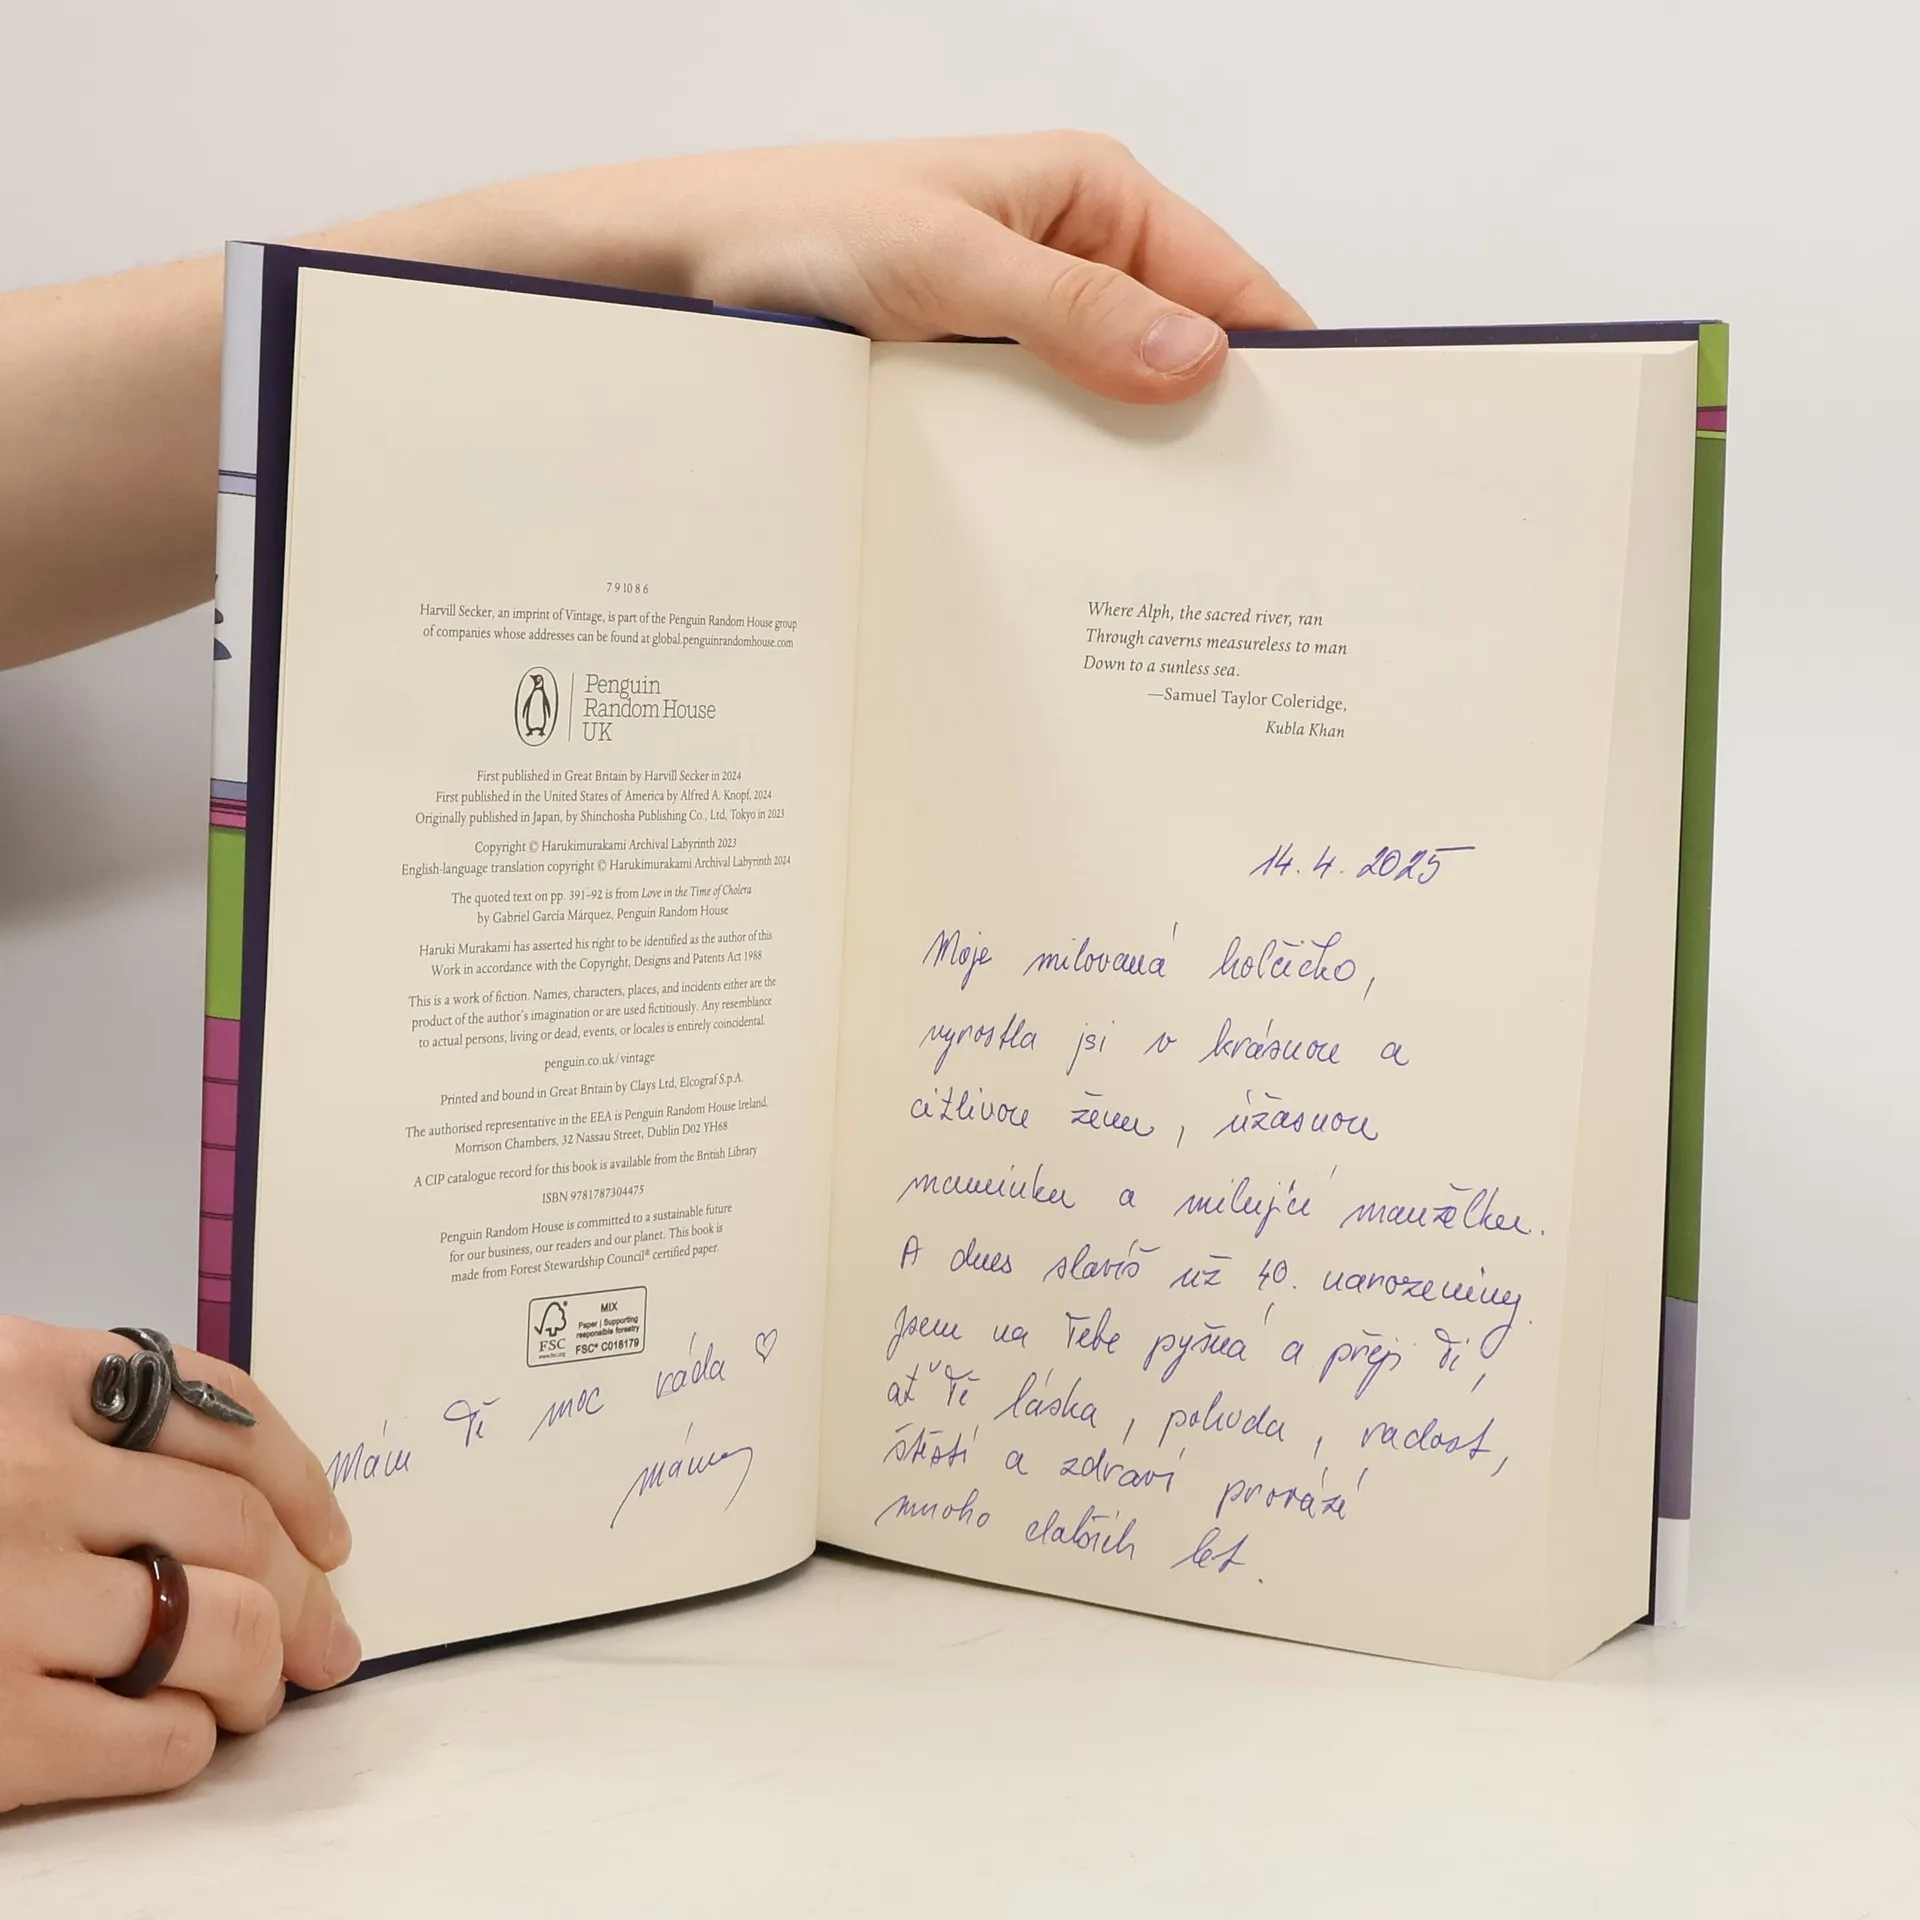 7 9 10 8 6
Harvill Secker, an imprint of Vintage, is part of the Penguin Random House group
of companies whose addresses can be found at global.penguinrandomhouse.com
Penguin
Random House
UK
First published in Great Britain by Harvill Secker in 2024
First published in the United States of America by Alfred A. Knopf, 2024
Originally published in Japan, by Shinchosha Publishing Co., Ltd, Tokyo in 2023
Copyright © Harukimurakami Archival Labyrinth 2023
English-language translation copyright © Harukimurakami Archival Labyrinth 2024
The quoted text on pp. 391–92 is from Love in the Time of Cholera
by Gabriel García Márquez, Penguin Random House
Haruki Murakami has asserted his right to be identified as the author of this
Work in accordance with the Copyright, Designs and Patents Act 1988
This is a work of fiction. Names, characters, places, and incidents either are the
product of the author's imagination or are used fictitiously. Any resemblance
to actual persons, living or dead, events, or locales is entirely coincidental.
penguin.co.uk/vintage
Printed and bound in Great Britain by Clays Ltd, Elcograf S.p.A.
The authorised representative in the EEA is Penguin Random House Ireland,
Morrison Chambers, 32 Nassau Street, Dublin D02 YH68
A CIP catalogue record for this book is available from the British Library
ISBN 9781787304475
Penguin Random House is committed to a sustainable future
for our business, our readers and our planet. This book is
made from Forest Stewardship Council® certified paper.
FSC
www.fsc.org
MIX
Paper | Supporting
responsible forestry
FSC® C018179
Mám Tě moc ráda ♡
máma
Where Alph, the sacred river, ran
Through caverns measureless to man
Down to a sunless sea.
—Samuel Taylor Coleridge,
Kubla Khan
14. 4. 2025
Moje milovaná holčičko,
vyrostla jsi v krásnou a
citlivou ženu, úžasnou
maminku a milující manželku.
A dnes slavíš už 40. narozeniny.
Jsem na Tebe pyšná a přeji Ti,
ať Tě láska, pohoda, radost,
štěstí a zdraví provází
mnoho dalších let.